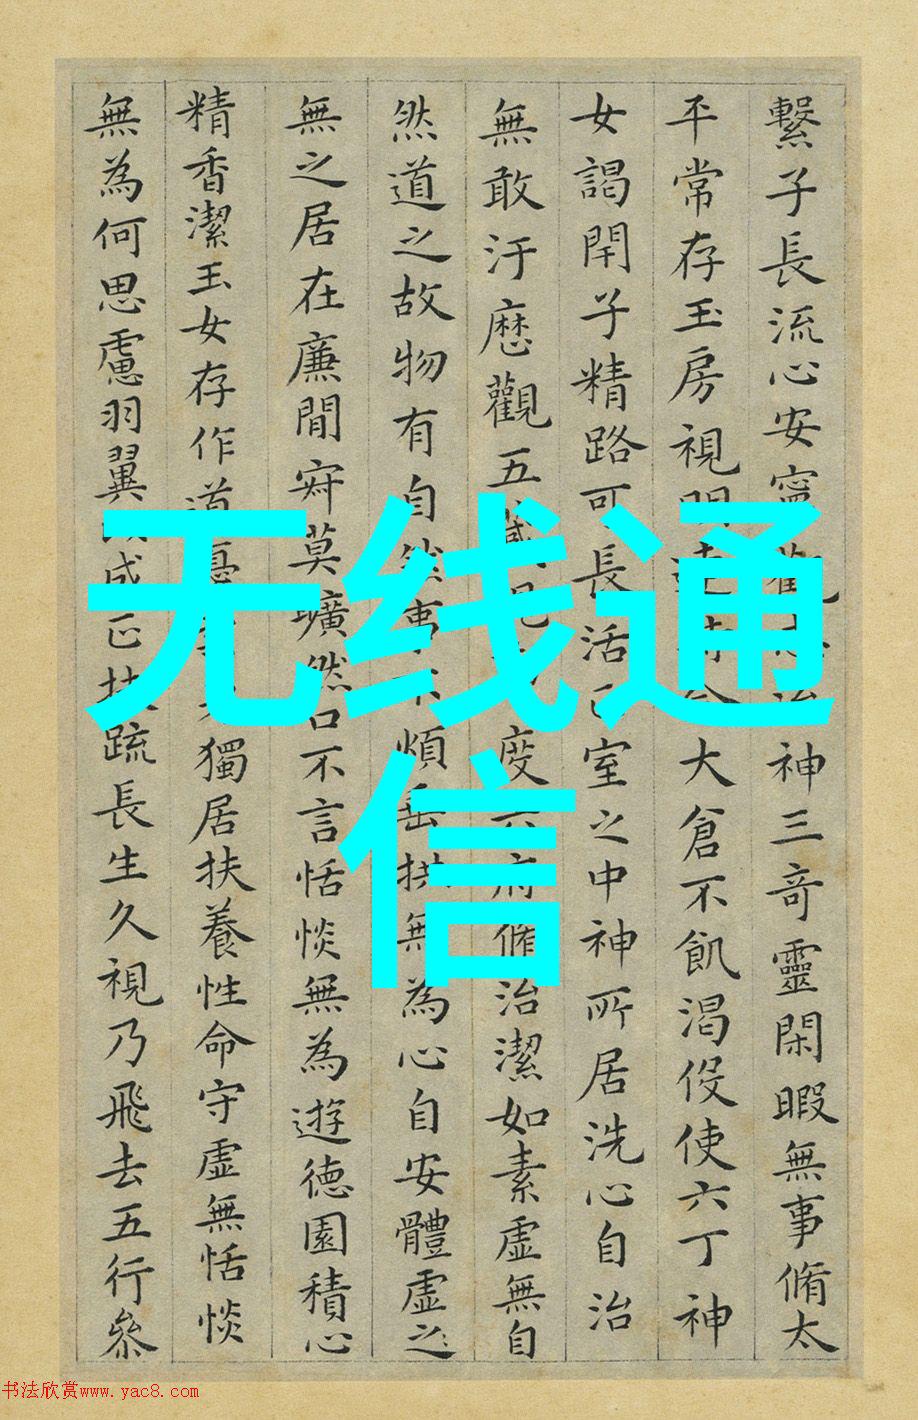 繫子長流心安寧觀神三竒靈閑暇無事脩太
平常存玉房視明達大倉不飢渴伇使六丁神
女謁閇子精路可長活室之中神所居洗心自治
無敢汙歷觀五藏度六府脩治潔如素虛無自
然道之故物有自然事不煩垂拱無為心自安體虛之
無之居在廉間寂莫曠然口不言恬惔無為遊德園積心
精香潔玉女存作道憂獨居扶養性命守虛無恬惔
無為何思慮羽翼成正扶疏長生久視乃飛去五行參
无线通
信
书法欣赏www.yac8.com